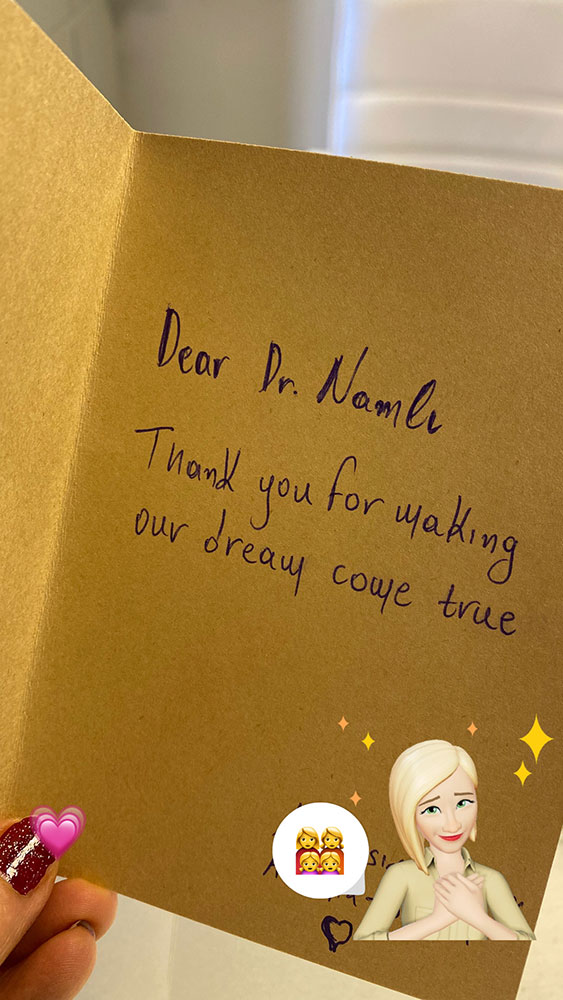 Dear Dr. Namlı
Thank you for making
our dream come true